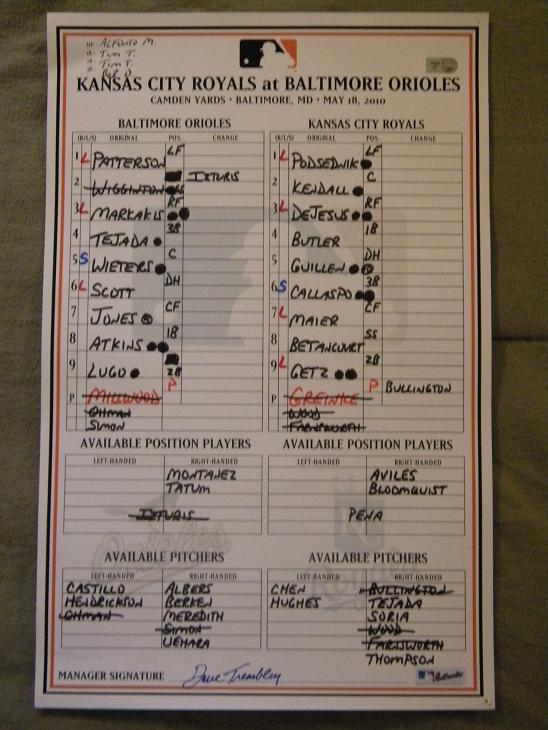 HP ALFONSO M.
TIM T.
TIM T.
KANSAS CITY ROYALS at BALTIMORE ORIOLES
CAMDEN YARDS • BALTIMORE, MD • MAY 18, 2010
BALTIMORE ORIOLES
(R/L/S) ORIGINAL POS. CHANGE
1 L PATTERSON LF
2 WIGGINTON IZTURIS
3 L MARKAKIS RF
4 TEJADA 3B
5 S WIETERS C
6 L SCOTT DH
7 JONES CF
8 ATKINS 1B
9 LUGO 2B
P MILLWOOD P
OHMAN
SIMON
KANSAS CITY ROYALS
(R/L/S) ORIGINAL POS. CHANGE
1 L PODSEDNIK LF
2 KENDALL C
3 L DEJESUS RF
4 BUTLER 1B
5 GUILLEN DH
6 S CALLASPO 3B
7 L MAIER CF
8 BETANCOURT SS
9 L GETZ 2B
P GREINKE P BULLINGTON
WOOD
FARNSWORTH
AVAILABLE POSITION PLAYERS
LEFT-HANDED RIGHT-HANDED
MONTANEZ
TATUM
IZTURIS
AVAILABLE POSITION PLAYERS
LEFT-HANDED RIGHT-HANDED
AVILES
BLOOMQUIST
PENA
AVAILABLE PITCHERS
LEFT-HANDED RIGHT-HANDED
CASTILLO ALBERS
HENDRICKSON BERKEN
OHMAN MEREDITH
SIMON
UEHARA
AVAILABLE PITCHERS
LEFT-HANDED RIGHT-HANDED
CHEN BULLINGTON
HUGHES TEJADA
SORIA
WOOD
FARNSWORTH
THOMPSON
MANAGER SIGNATURE Dave Trembley